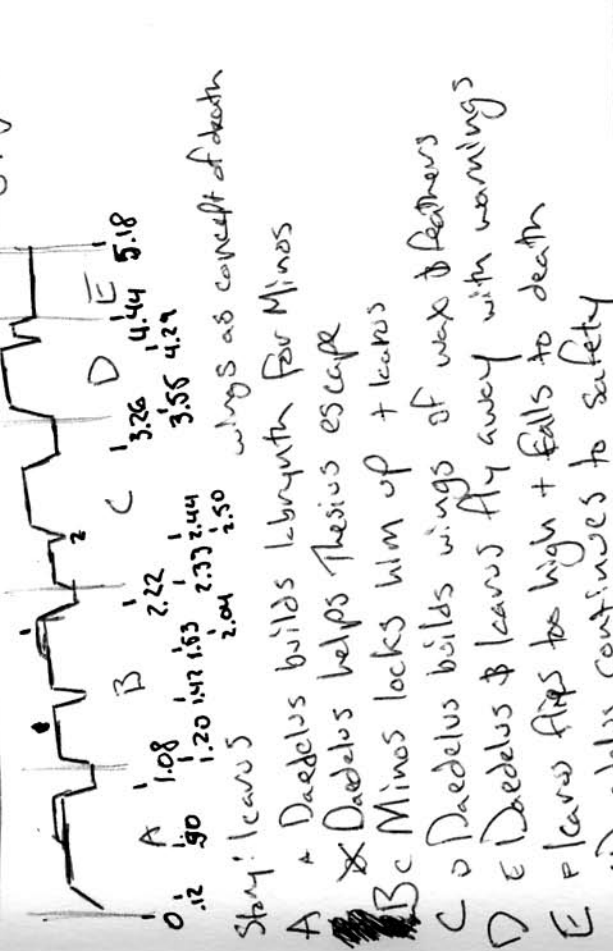 A B C D E
0 .12 .90 1.08 1.20 1.42 1.53 2.04 2.22 2.33 2.44 2.50 3.26 3.55 4.29 4.44 5.18
2
Story: Icarus wings as concept of death
A A Daedelus builds labrynth for Minos
Daedelus helps Thesius escape
B C Minos locks him up + Icarus
C D Daedelus builds wings of wax & feathers
D E Daedelus & Icarus fly away with warnings
E F Icarus flies too high + falls to death
continues to safety